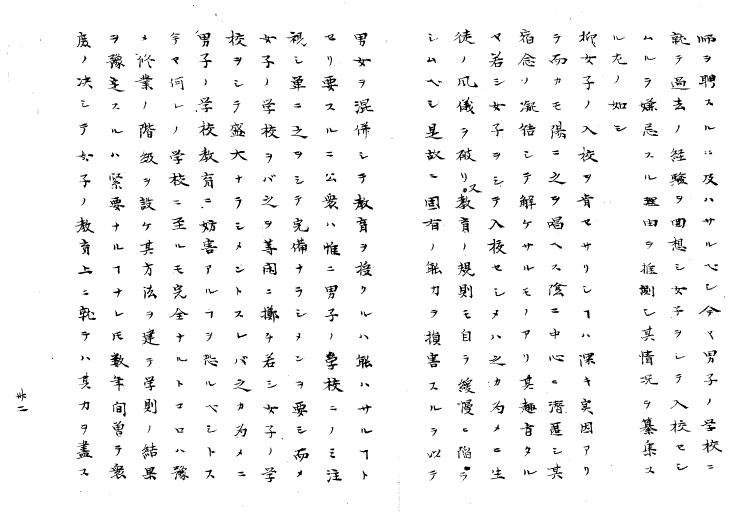 師ヲ聘スルニ及ハサルベシ今ヤ男子ノ学校ニ
就テ過去ノ経験ヲ回想シ女子ヲシテ入校セシ
ムルヲ嫌忌スル理由ヲ推測シ其情況ヲ纂集ス
ル左ノ如シ
抑女子ノ入校ヲ肯セサリシヿハ深キ実因アリ
テ而カモ陽ニ之ヲ唱ヘス陰ニ中心ニ潜匿シ其
宿念ノ凝結シテ解ケサルモノアリ其趣旨タル
ヤ若シ女子ヲシテ入校セシメハ之カ為メニ生
徒ノ風儀ヲ破リ又教育ノ規則モ自ラ緩慢ニ陥ラ
シムベシ是故ニ固有ノ能力ヲ損害スルヲ以テ
男女ヲ混併シテ教育ヲ授クルハ能ハサルヿト
セリ要スルニ公衆ハ惟ニ男子ノ学校ニノミ注
視シ単ニ之ヲシテ完備ナラシメンヲ要シ而メ
女子ノ学校ヲバ之ヲ等閑ニ擲チ若シ女子ノ学
校ヲシテ盛大ナラシメントスレバ之カ為メニ
男子ノ学校教育ニ妨害アルヿヲ恐ルベシトス
今ヤ何レノ学校ニ至ルモ完全ナルトコロハ豫
メ修業ノ階級ヲ設ケ其方法ヲ建テ学則ノ結果
ヲ豫定スルハ緊要ナルヿナレ𪜈数年間曽テ衆
庶ノ決シテ女子ノ教育上ニ就テハ其力ヲ盡ス
廿一